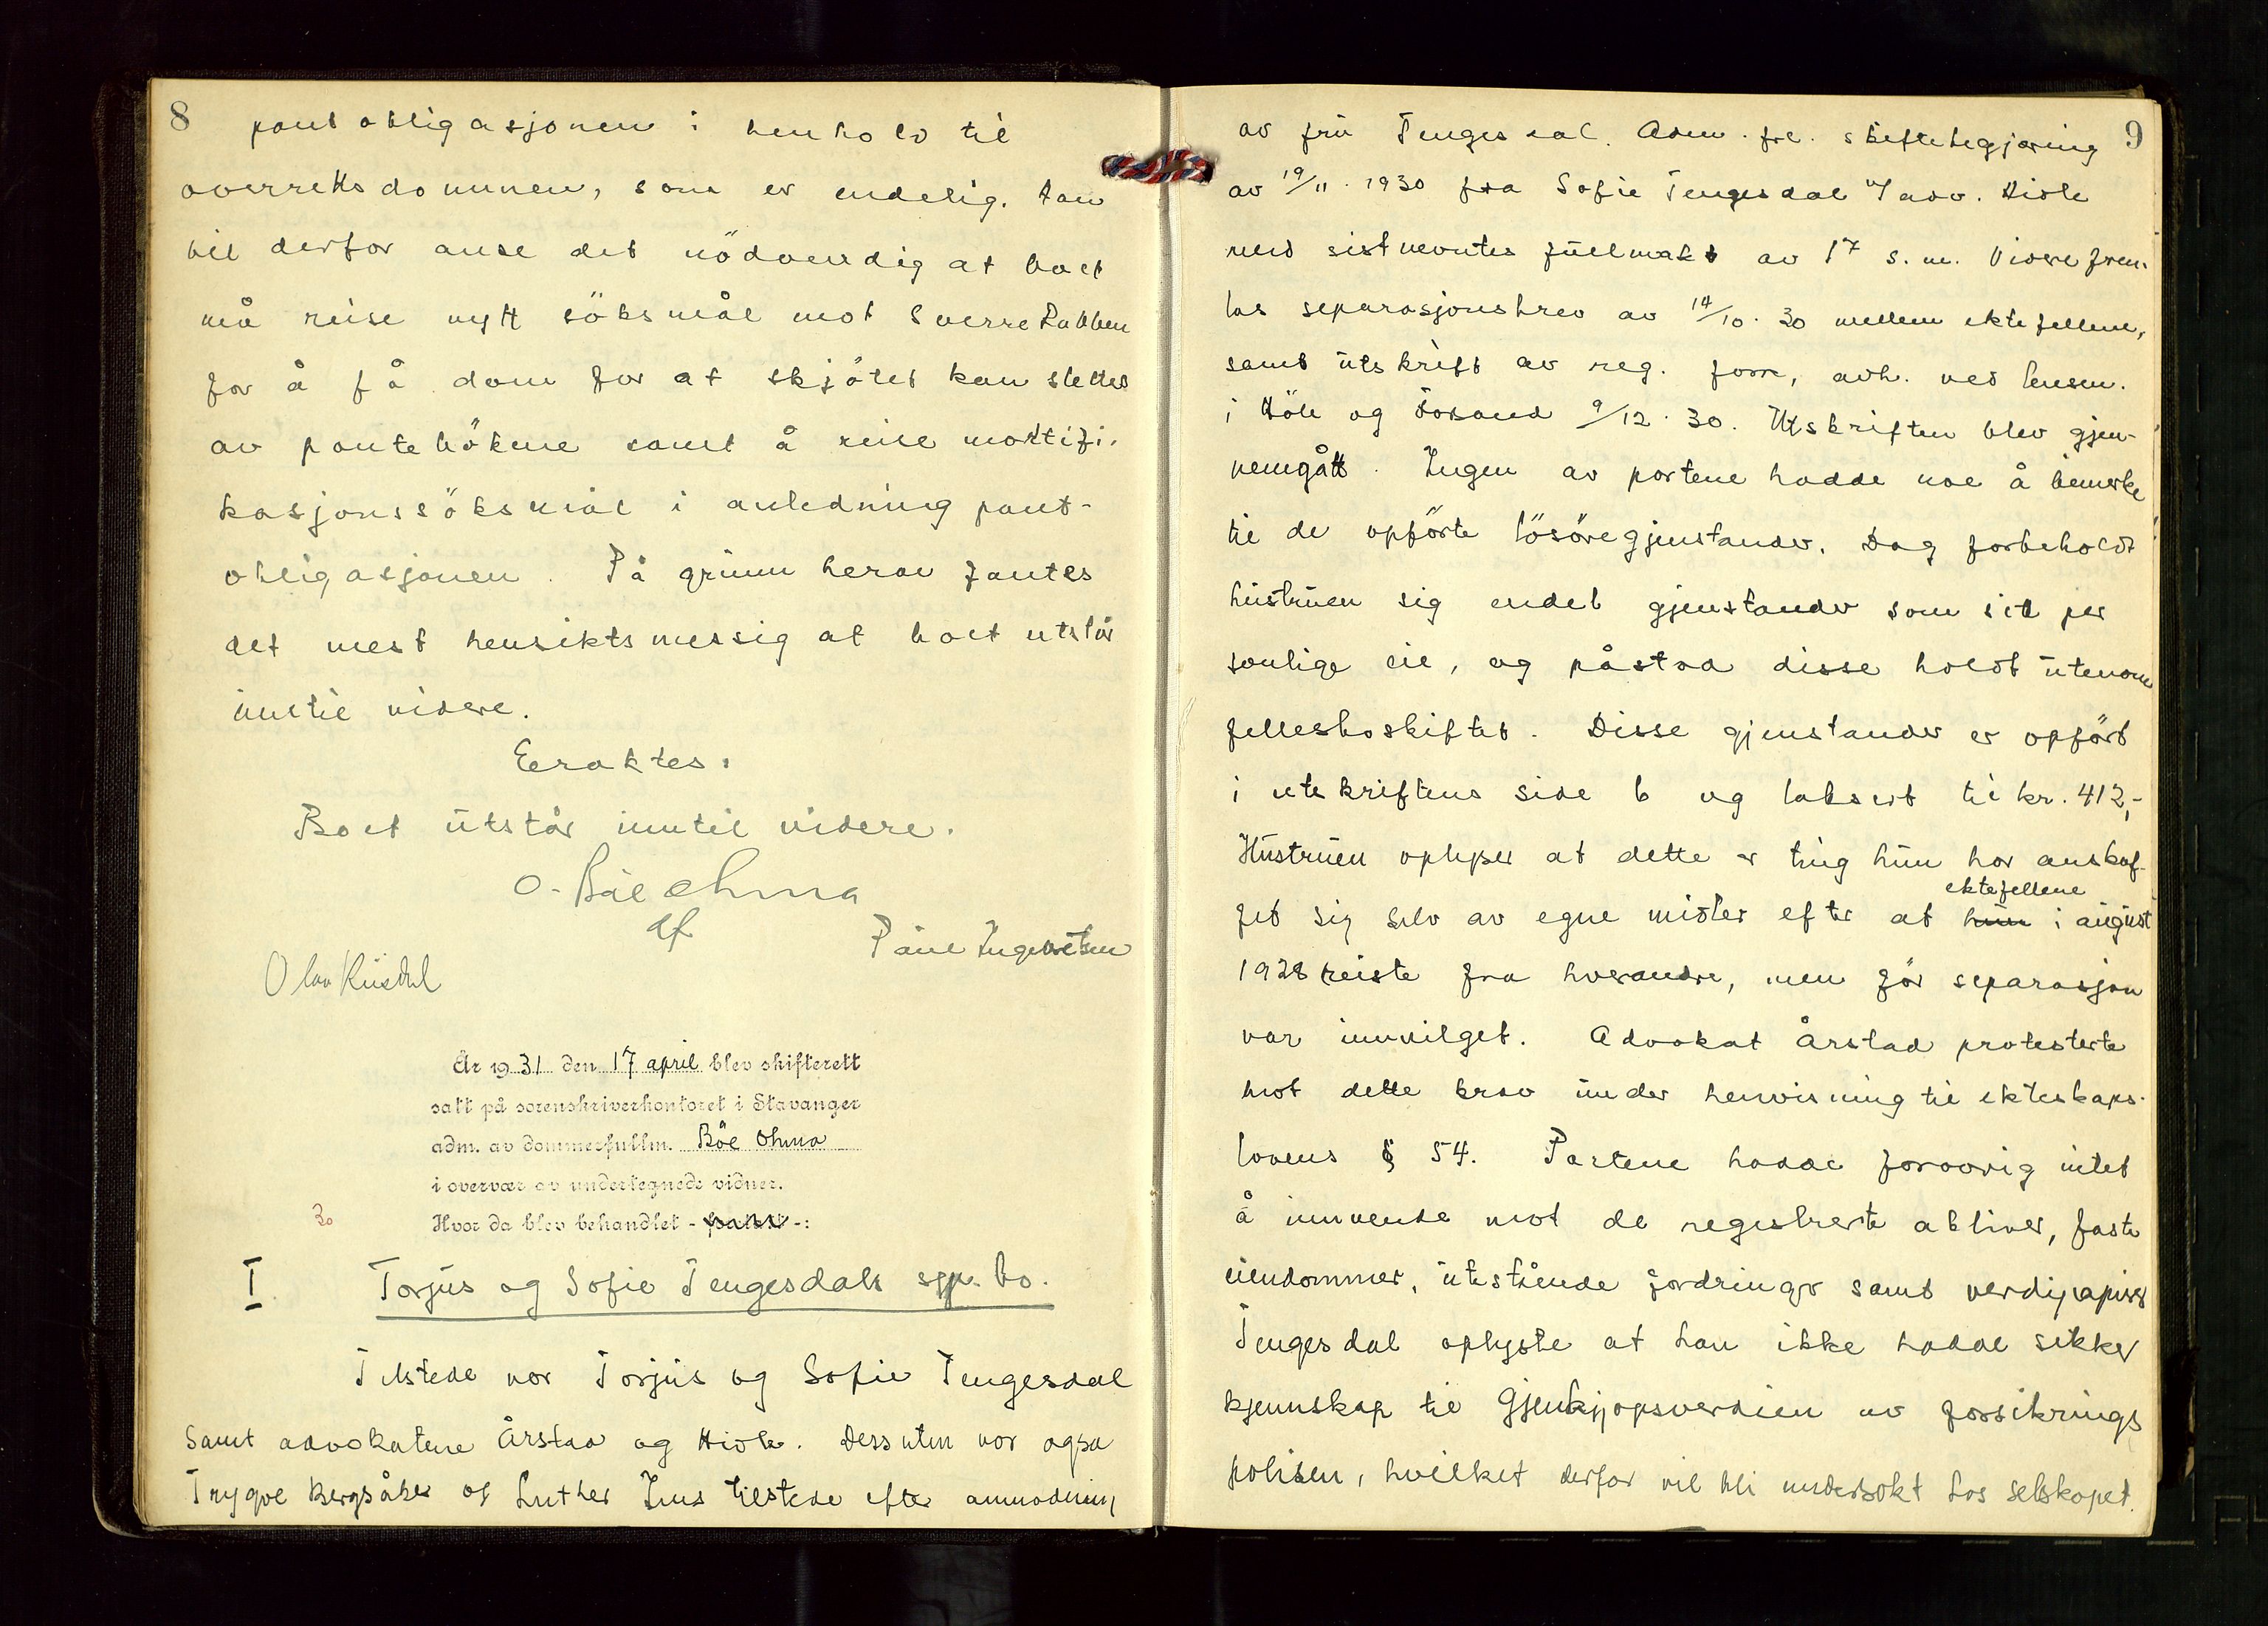 8
pantobligasjonen i henhold til
overrettsdommen, som er endelig. Han
vil derfor anse det nödvendig at boet
må reise nytt söksmål mot Sverre Rabben
for å få dom for at skjötet kan slettes
av pantebökene samt å reise mortifi-
kasjonssöksmål i anledning pant-
obligasjonen. På grunn herav fantes
det mest hensiktsmessig at boet utstår
inntil videre.
Eraktes:
Boet utstår inntil videre.
O. Böe Ohma
df
Påul Ingebretsen
Olav Risdal
År 1931 den 17 april blev skifterett
satt på sorenskriverkontoret i Stavanger
adm. av dommerfullm. Böe Ohma
i overvær av undertegnede vidner.
30
Hvor da blev behandlet - :
I. Torjus og Sofie Tengesdals sep. bo.
Tilstede var Torjus og Sofie Tengesdal
samt advokatene Årstad og Hiole. Dessuten var også
Trygve Bergsåker og Luther Ims tilstede efter anmodning
9
av fru Tengesdal. Adm. frl. skiftebegjæring
av 19/11. 1930 fra Sofie Tengesdal v/adv. Hiole
med sistnevntes fullmakt av 17 s.m. Videre frem-
las separasjonsbrev av 14/10. 30 mellem ektefellene,
samt utskrift av reg. forr, avh. ved lensm.
i Höle og Forsand 9/12. 30. Utskriften blev gjen-
nemgått. Ingen av partene hadde noe å bemerke
til de opförte lösöregjenstander. Dog forbeholdt
hustruen sig endel gjenstander som sitt per
sonlige eie, og påstod disse holdt utenom
felleboskiftet. Disse gjenstander er opfört
i utskriftens side 6 og taksert til kr. 412,-
Hustruen oplyser at dette er ting hun har anskaf-
fet sig selv av egne midler efter at hun ektefellene i august
1928 reiste fra hverandre, men för separasjon
var innvilget. Advokat Årstad protesterte
mot dette krav under henvisning til ekteskaps-
lovens § 54. Partene hadde forøvrig intet
å innvende mot de registrerte aktiver, faste
eiendommer, utestående fordringer samt verdipapirer
Tengesdal oplyste at han ikke hadde sikker
kjennskap til gjenkjöpsverdien av forsikrings
polisen, hvilket derfor vil bli undersökt hos selskapet.